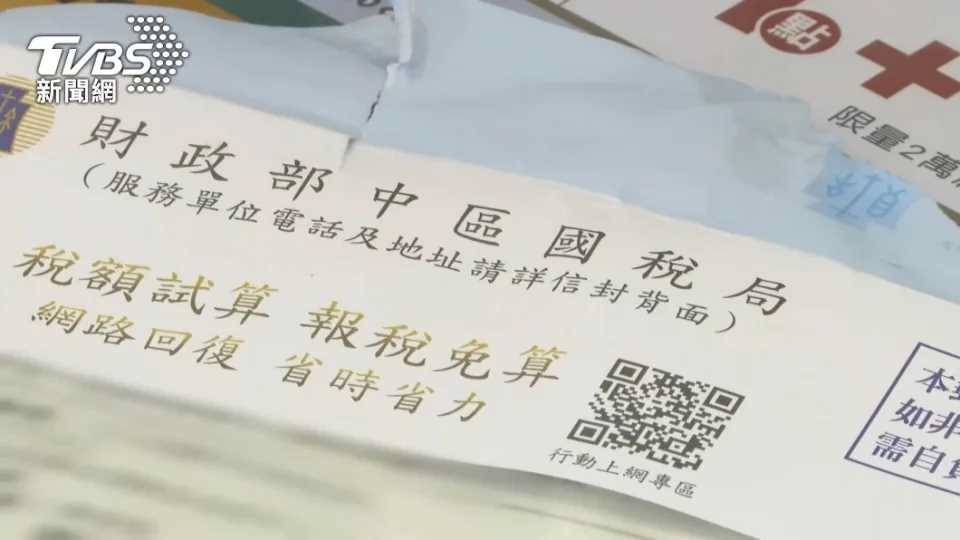 TVBS
新聞網
點
限量2萬
財政部中區國稅局
（服務單位電話及地址請詳信封背面）
稅額試算 報稅免算
網路回復 省時省力
行動上網專區
本
如非
需自